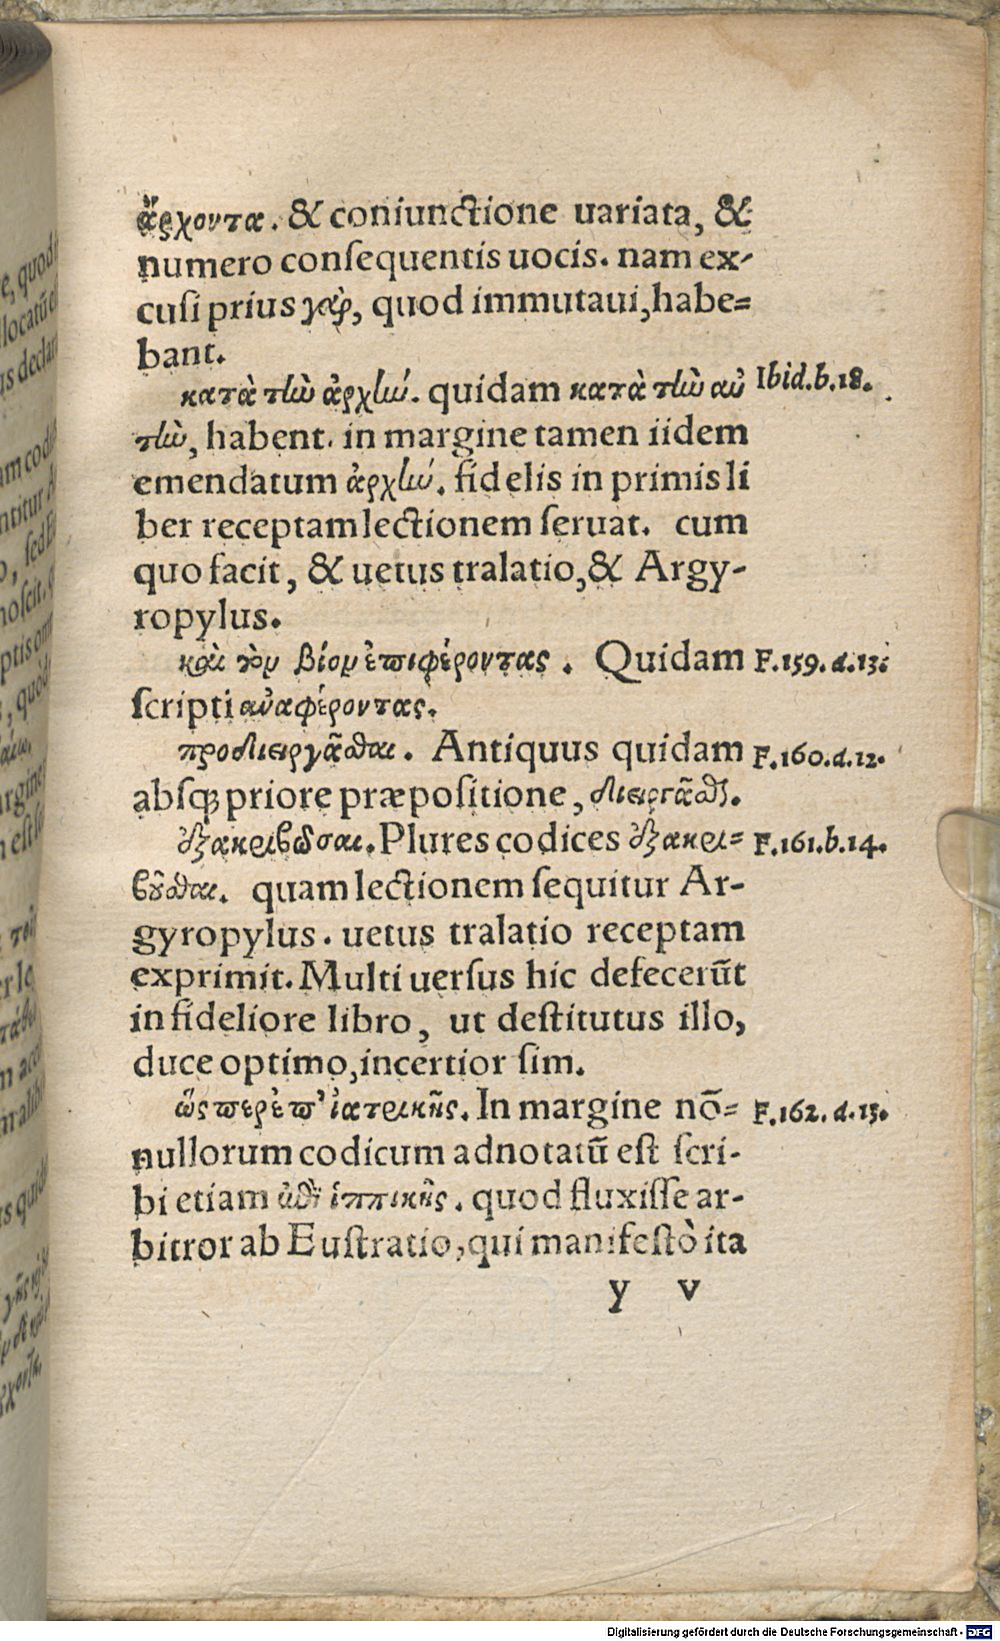 ἄρχοντα. & coniunctione uariata, &
numero consequentis uocis. nam ex-
cusi prius γὰρ, quod immutaui, habe=
bant.
κατὰ τὴν ἀρχήν. quidam κατὰ τὴν αὐ Ibid.b.18.
τὴν, habent. in margine tamen iidem
emendatum ἀρχήν. fidelis in primis li
ber receptam lectionem seruat. cum
quo facit, & uetus tralatio, & Argy-
ropylus.
καὶ τὸν βίον ἐπιφέροντας. Quidam F.159.d.13.
scripti αὐαφέροντας.
προδιειργᾶσθαι. Antiquus quidam F.160.d.12.
absq; priore præpositione, διειργᾶσθαι.
ἐξακριβῶσαι. Plures codices ἐξακρι= F.161.b.14.
βοῦσθαι. quam lectionem sequitur Ar-
gyropylus. uetus tralatio receptam
exprimit. Multi uersus hic defecerūt
in fideliore libro, ut destitutus illo,
duce optimo, incertior sim.
ὥσπερ ἐπ' ἰατρικῆς. In margine nō= F.162.d.13.
nullorum codicum adnotatū est scri-
bi etiam ἀθὶ ἱππικῆς. quod fluxisse ar-
bitror ab Eustratio, qui manifestò ita
y v
Digitalisierung gefördert durch die Deutsche Forschungsgemeinschaft - DFG